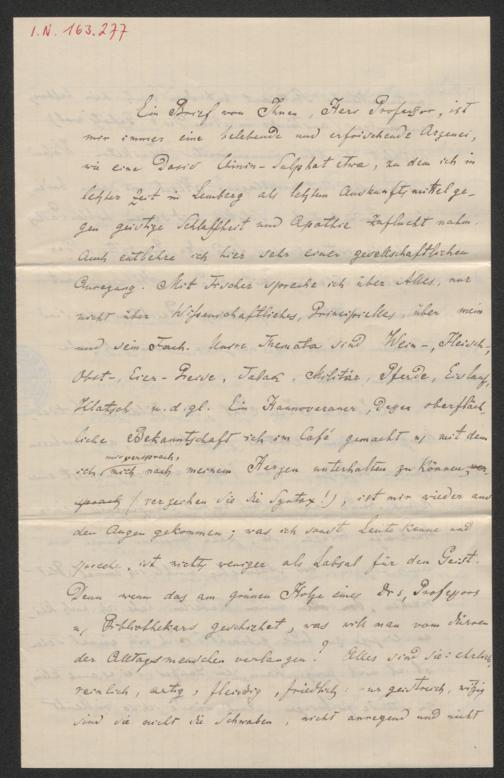 I.N. 163.277
Ein Brief von Ihnen, Herr Professor, ist
mir immer eine belebende und erfrischende Arzenei,
wie eine Dosis Chinin-Sulphat etwa, zu dem ich in
letzter Zeit in Lemberg als letztem Auskunftsmittel ge-
gen geistige Schlaffheit und Apathie Zuflucht nahm.
Auch entbehre ich hier sehr einer gesellschaftlichen
Anregung. Mit Fischer spreche ich über Alles, nur
nicht über Wissenschaftliches, Principielles, über mein
und sein Fach. Unsre Themata sind Wein-, Fleisch-,
Obst-, Eier-Preise, Tabak, Militär, Pferde, Eislauf,
Klatsch u.d.gl. Ein Hannoveraner, dessen oberfläch-
liche Bekanntschaft ich im Café gemacht u. mit dem
mir versprach,
ich mich nach meinem Herzen unterhalten zu können
(verzeihen Sie die Syntax!), ist mir wieder aus
den Augen gekommen; was ich sonst Leute kenne und
spreche, ist nichts weniger als Labsal für den Geist.
Denn wenn das am grünen Holze eines Drs, Professors
u. Bibliothekars geschiehet, was will man vom dürren
der Alltagsmenschen verlangen? Alles sind sie: ehrlich
reinlich, artig, fleissig, friedlich: nur geistreich, witzig
sind sie nicht die Schwaben, nicht anregend und nicht